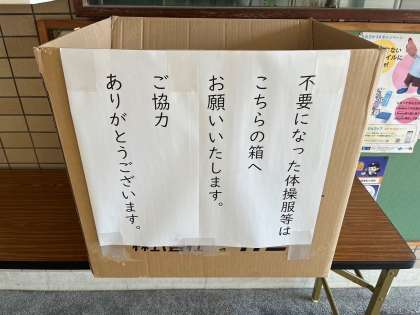 不要になった体操服等は
こちらの箱へ
お願いいたします。
ご協力
ありがとうございます。